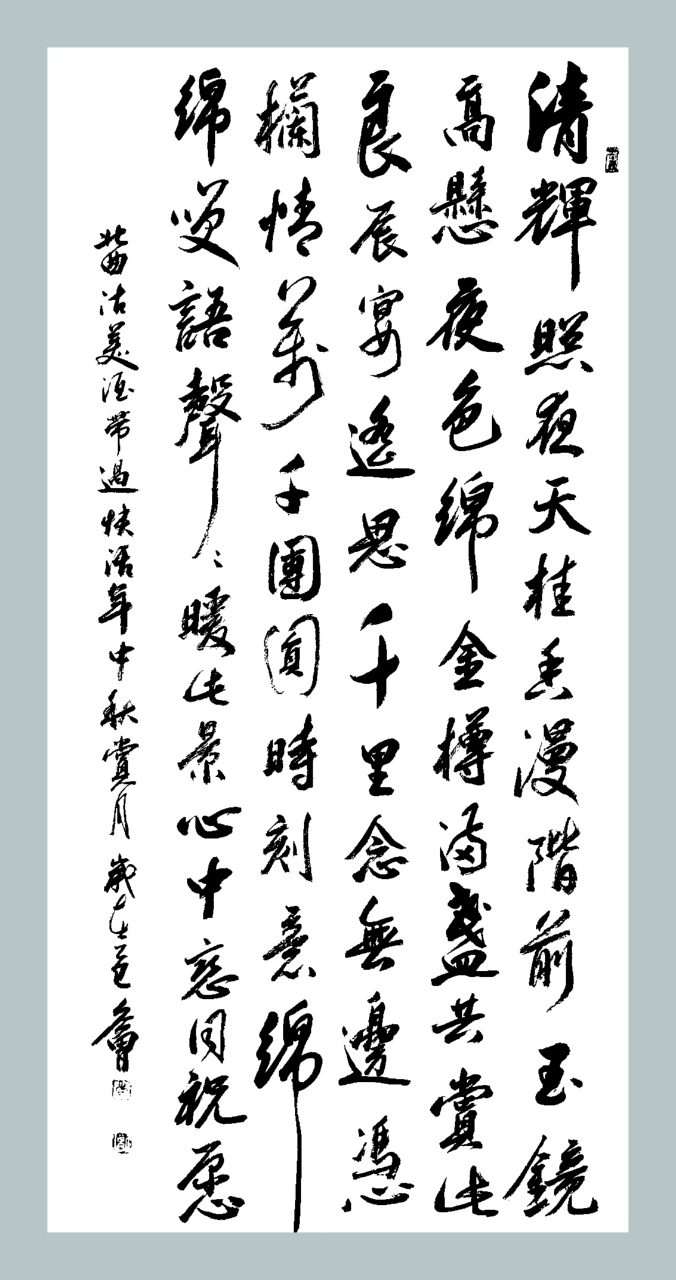 清輝照夜天桂香漫階前玉鏡
高懸夜色綿金樽滿盞共賞此
良辰宴遙思千里念無邊憑
欄情萬千團圓時刻意綿
綿笑語聲〻暖此景心中戀同祝愿
北曲沽美酒帶過快活年中秋賞月歲在乙巳